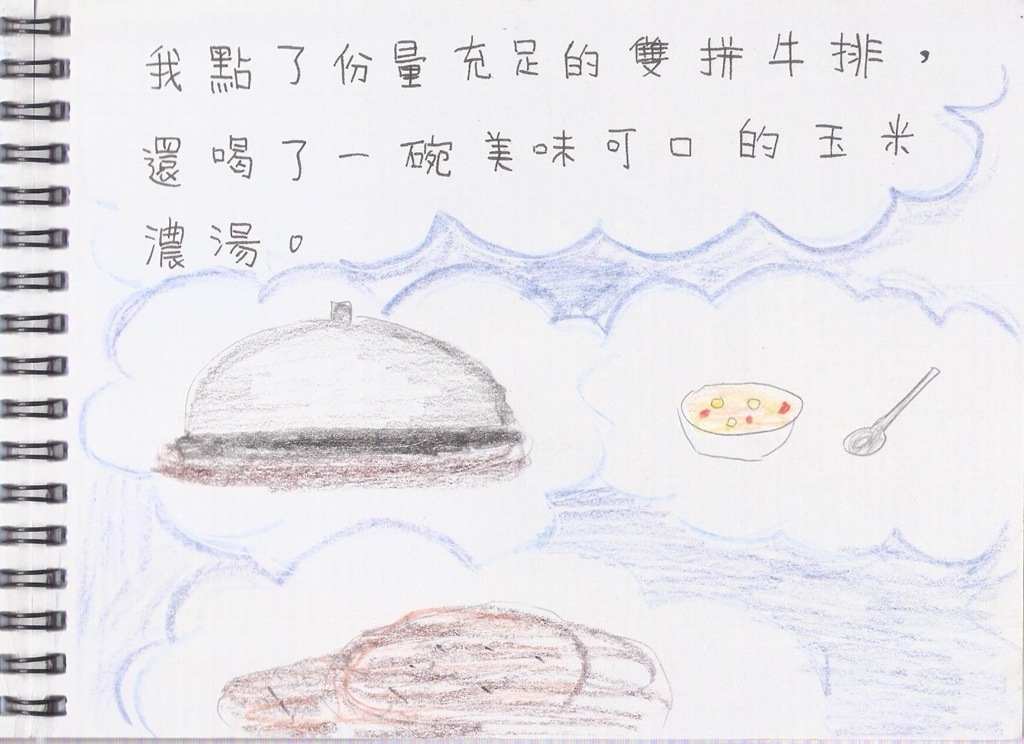 我點了份量充足的雙拼牛排，
還喝了一碗美味可口的玉米
濃湯。